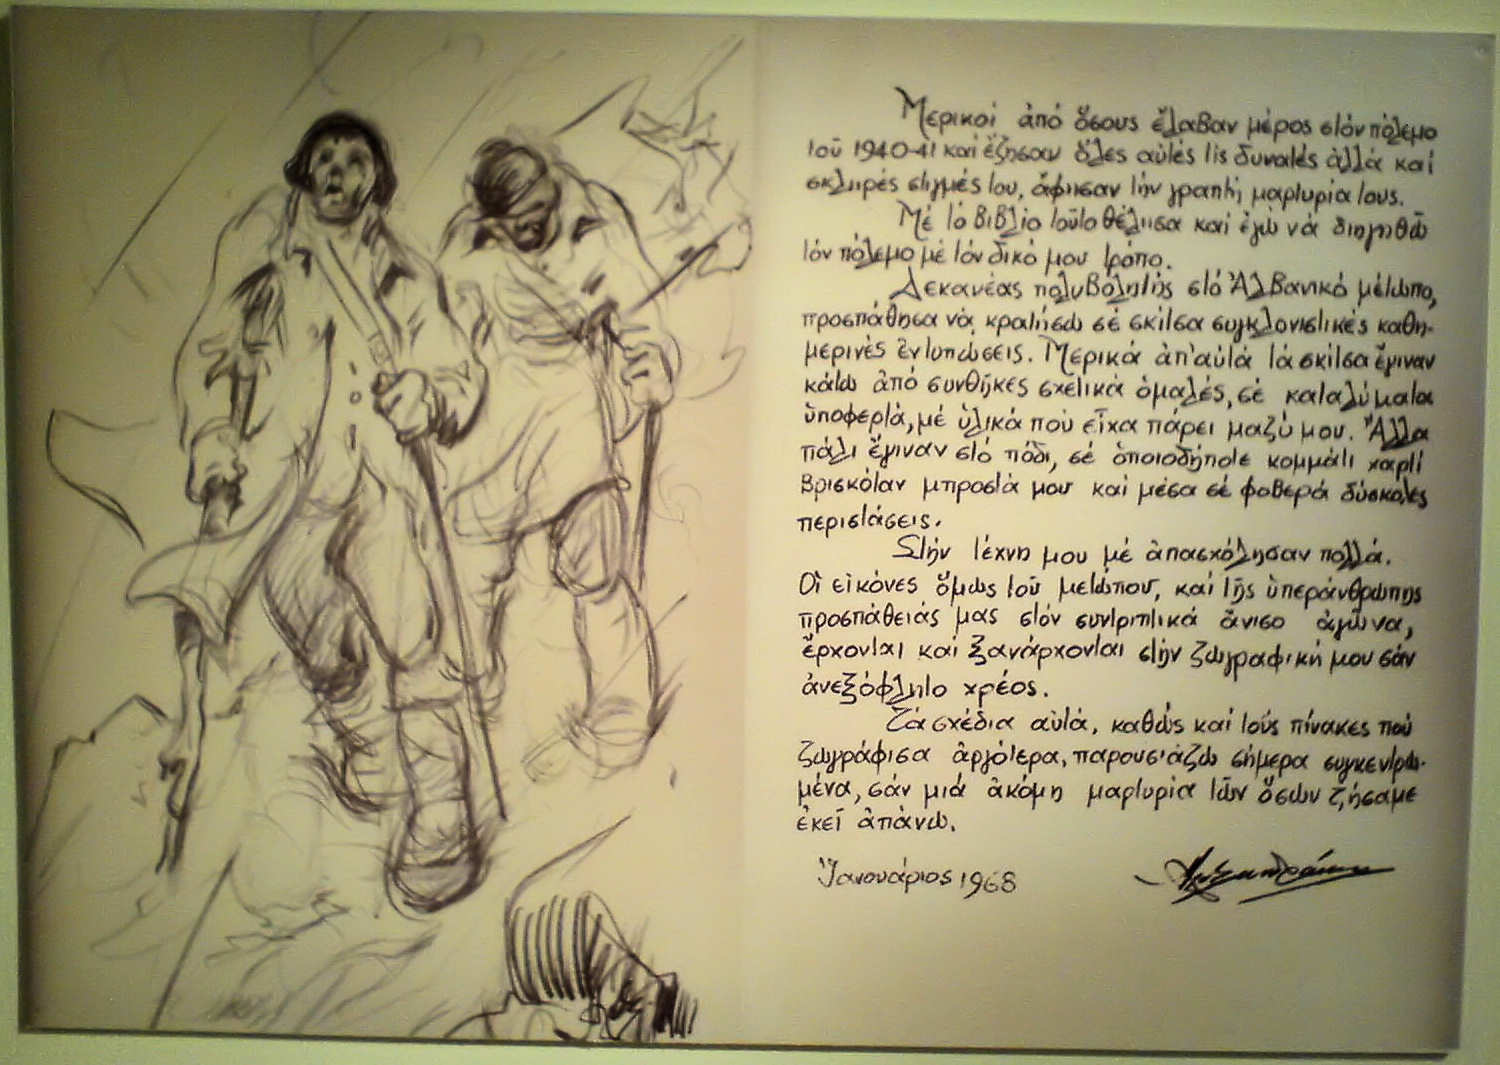 Μερικοί ἀπό ὅσους ἔλαβαν μέρος στόν πόλεμο
τοῦ 1940-41 καί ἔζησαν ὅλες αὐτές τίς δυνατές ἀλλά καί
σκληρές στιγμές του, ἄφησαν τήν γραπτή μαρτυρία τους.
Μέ τό βιβλίο τοῦτο θέλησα καί ἐγώ νά διηγηθῶ
τόν πόλεμο μέ τόν δικό μου τρόπο.
Δεκανέας πολυβολητής στό Ἀλβανικό μέτωπο,
προσπάθησα νά κρατήσω σέ σκίτσα συγκλονιστικές καθη-
μερινές ἐντυπώσεις. Μερικά ἀπ' αὐτά τά σκίτσα ἔγιναν
κάτω ἀπό συνθῆκες σχετικά ὁμαλές, σέ καταλύματα
ὑποφερτά, μέ ὑλικά πού εἶχα πάρει μαζύ μου. Ἄλλα
πάλι ἔγιναν στό πόδι, σέ ὁποιοδήποτε κομμάτι χαρτί
βρισκόταν μπροστά μου καί μέσα σέ φοβερά δύσκολες
περιστάσεις.
Στήν τέχνη μου μέ ἀπασχόλησαν πολλά.
Οἱ εἰκόνες ὅμως τοῦ μετώπου, καί τῆς ὑπεράνθρωπης
προσπάθειάς μας στόν συντριπτικά ἄνισο ἀγώνα,
ἔρχονται καί ξανάρχονται στήν ζωγραφική μου σάν
ἀνεξόφλητο χρέος.
Τά σχέδια αὐτά, καθώς καί τούς πίνακες πού
ζωγράφισα ἀργότερα, παρουσιάζω σήμερα συγκεντρω-
μένα, σάν μιά ἀκόμη μαρτυρία τῶν ὅσων ζήσαμε
ἐκεῖ ἀπάνω.
Ἰανουάριος 1968